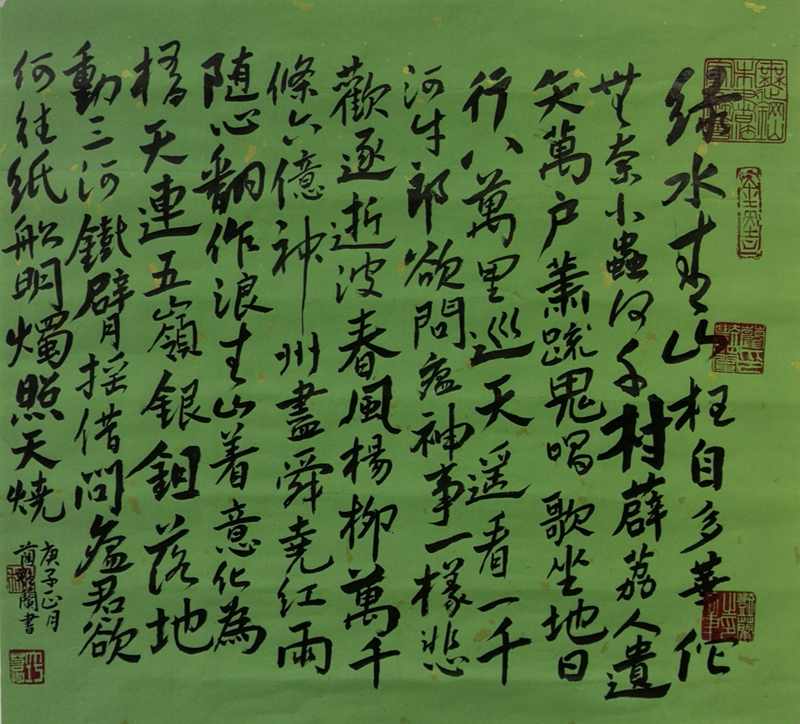 緑水青山枉自多華佗
無奈小蟲何千村薜荔人遺
矢萬戶蕭疏鬼唱歌坐地日
行八萬里巡天遥看一千
河牛郎欲問瘟神事一樣悲
歡逐逝波春風楊柳萬千
條六億神州盡舜堯紅雨
随心翻作浪青山着意化為
橋天連五嶺銀鉏落地
動三河鐵臂摇借問瘟君欲
何往紙船明燭照天燒
庚子正月
書